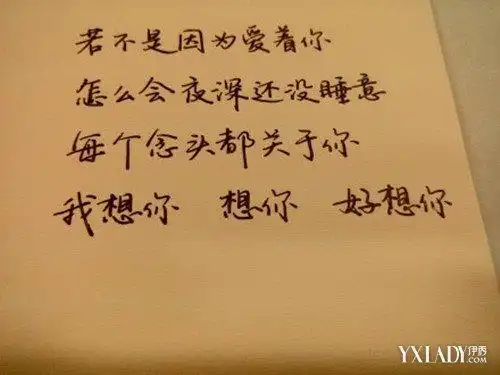 若不是因为爱着你
怎么会夜深还没睡意
每个念头都关于你
我想你 想你 好想你
YXLADY伊秀
.COM